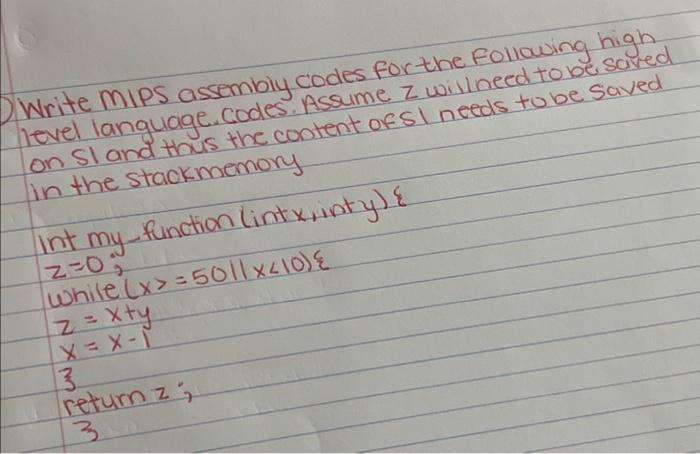 ) Write MIPS assembly codes for the following high
level language codes. Assume z will need to be saved
on S1 and thus the content of S1 needs to be saved
in the stack memory
int my_function (int x, int y) {
z=0;
while (x>=50||x<10){
z = x+y
x = x-1
}
return z;
}